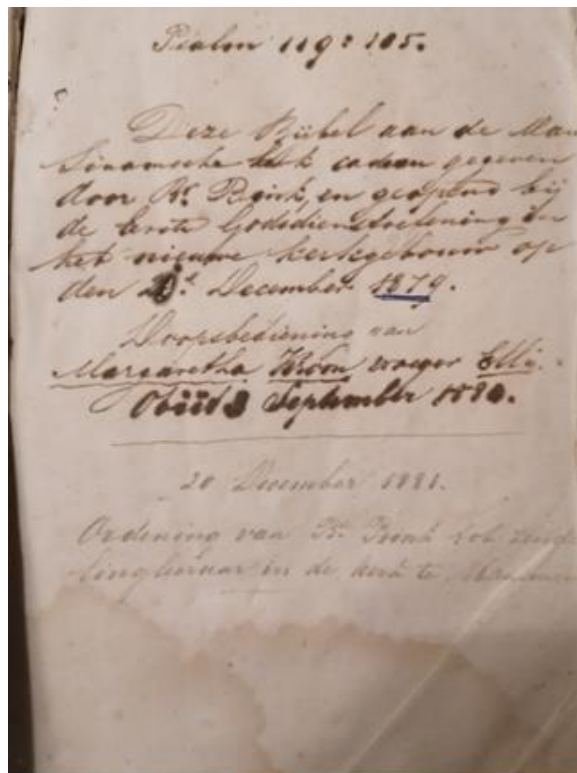 Psalm 119:105.
Deze Bijbel aan de Man
sinamsche kerk cadeau gegeven
door Br. Rinnooy, en geopend bij
de Eerste Godsdienstoefening in
het nieuwe kerkgebouw op
den December 1879.
Doopsbediening aan
Margaretha Kroon vroeger Elli.
Obiid 3 September 1880.
20 December 1881.
Ordening van Br. tot zende
lingleeraar in de kerk te Mansinam